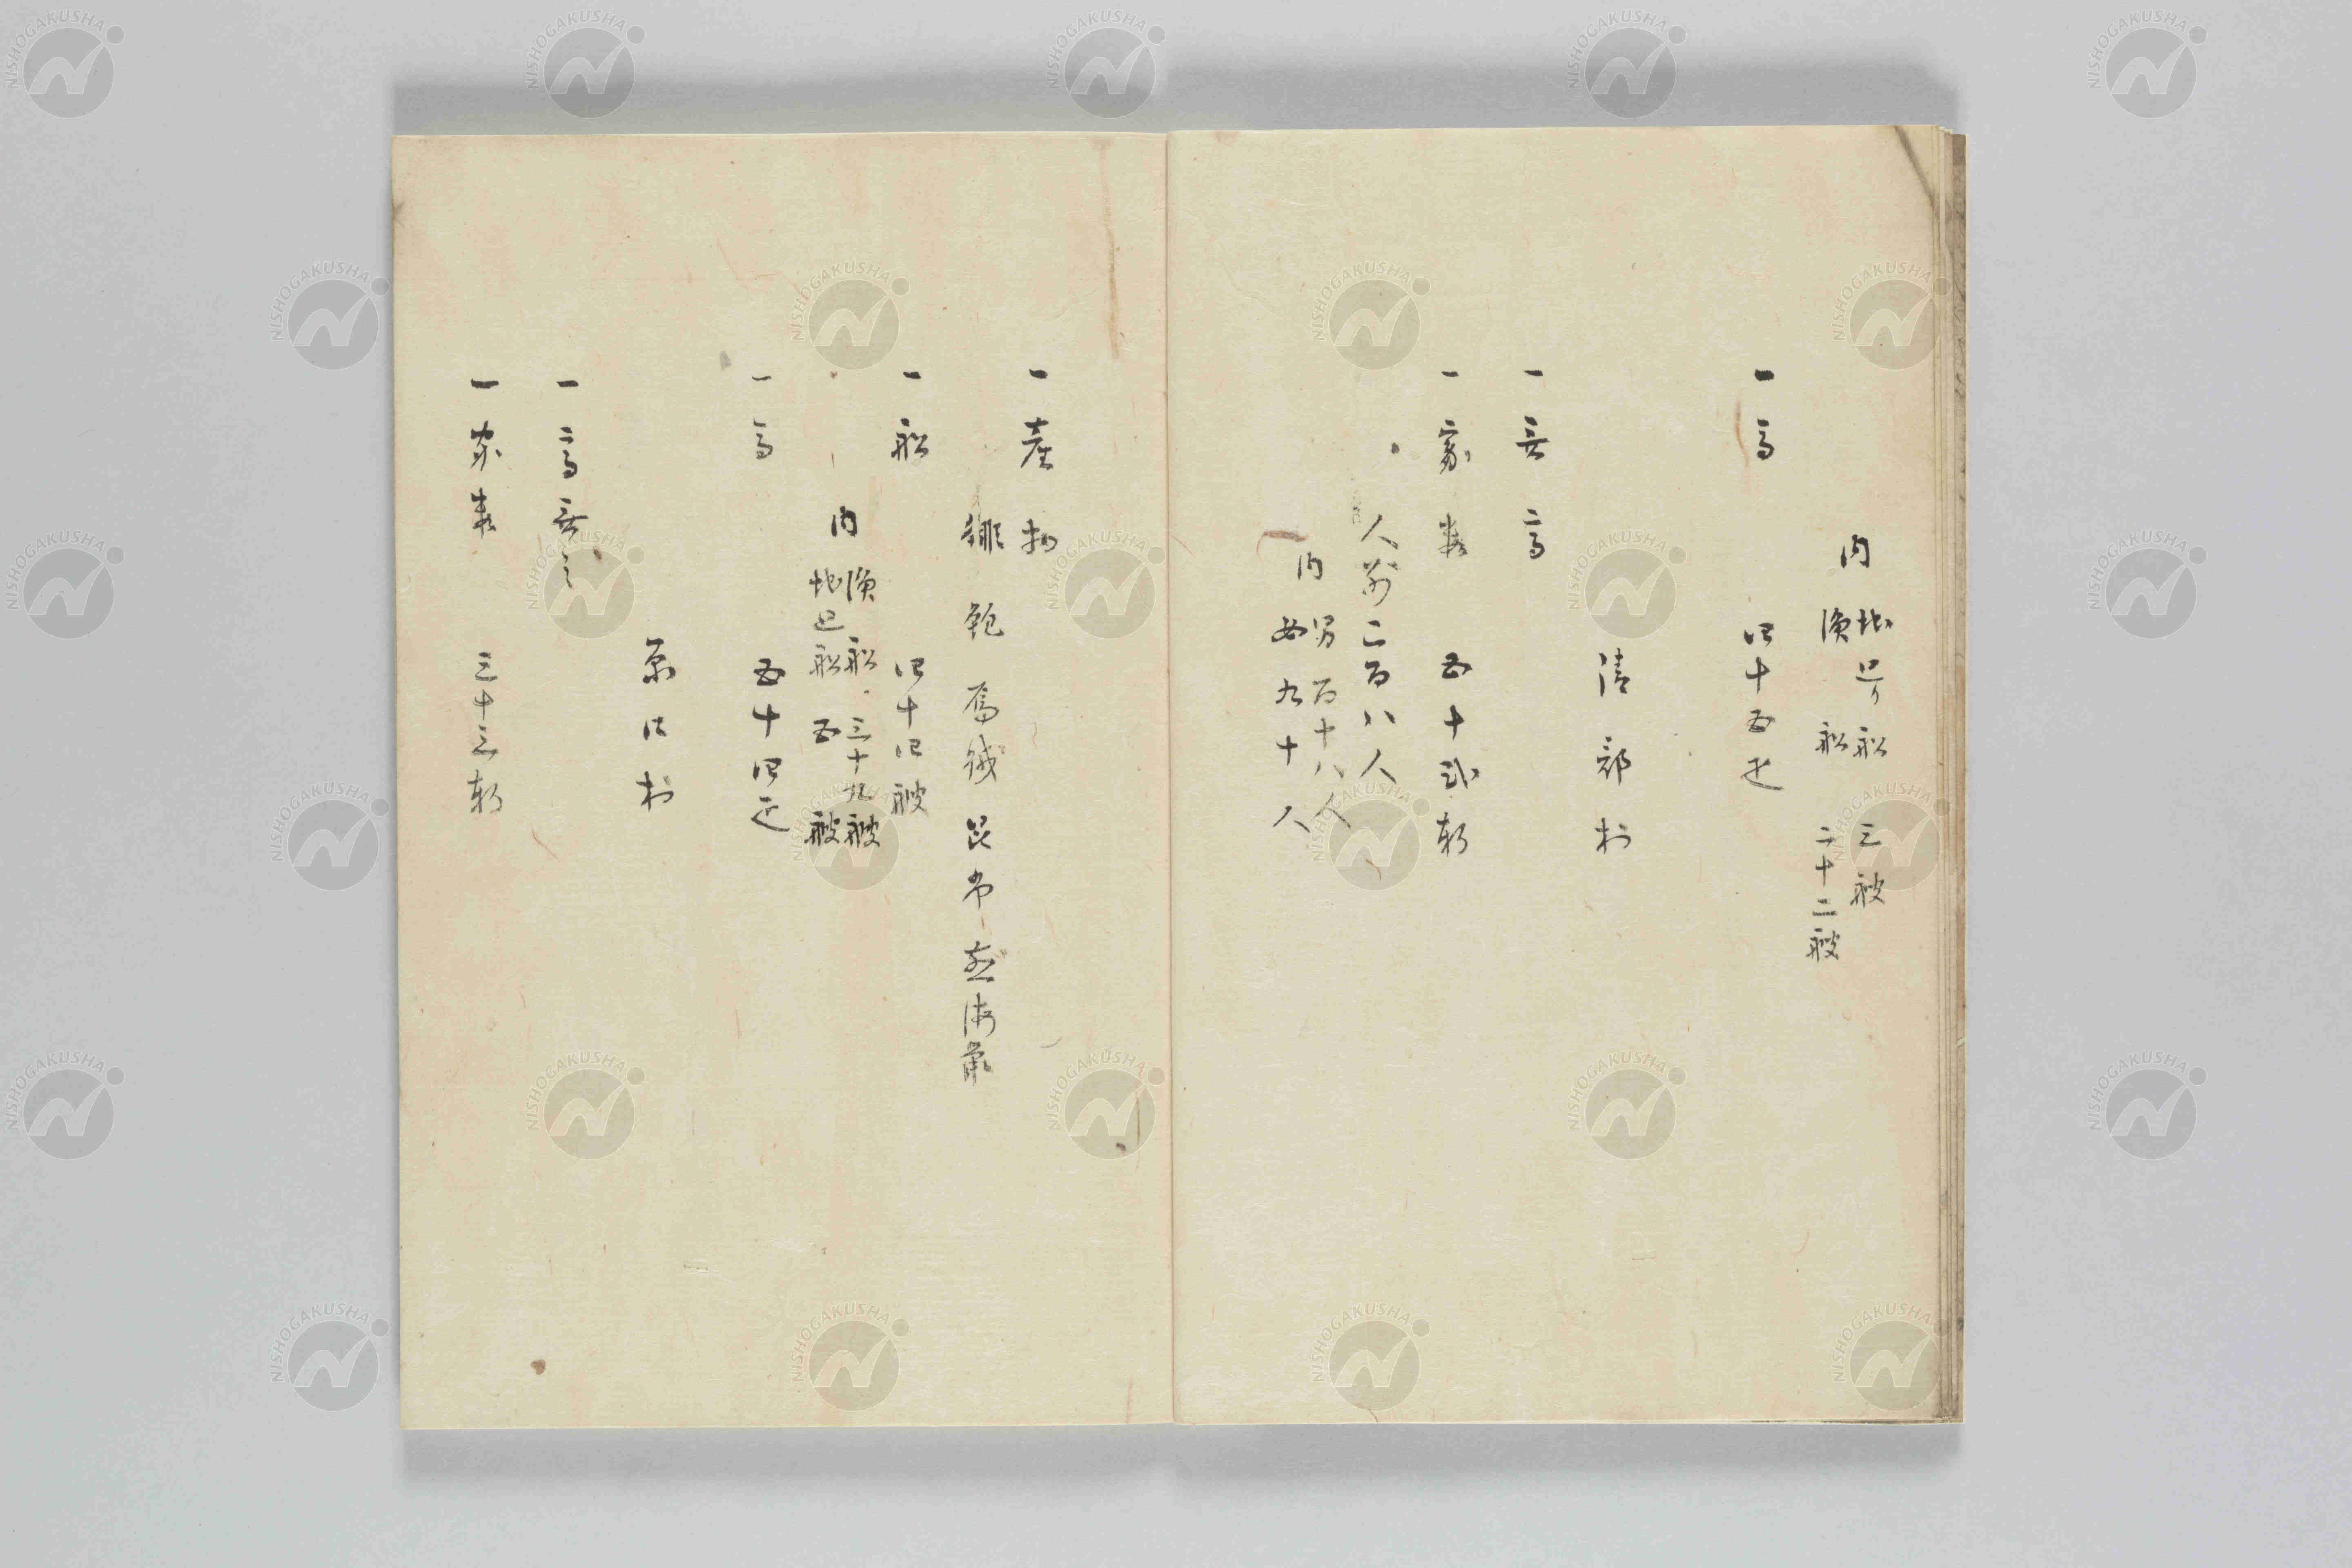 内 地船 三艘
漁船 二十二艘
一 馬 四十五疋
清部村
一 無高
一 家数 五十弐軒
人別二百八人
内 男百十八人
女九十人
一 産物
鯡 鮑 烏賊 昆布 煎海鼠
一 船 四十四艘
内 漁船 三十九艘
地船 五艘
一 馬 五十四疋
原口村
一 高無之
一 家数 三十三軒
NISHOGAKUSHA